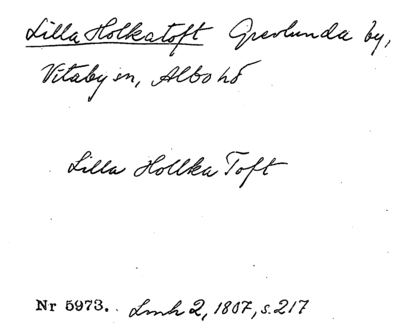 Lilla Holkatoft Grevlunda by,
Vitaby sn, Albo hd
Lilla Hollka Toft
Nr 5973. Lmh 2, 1807, s. 217